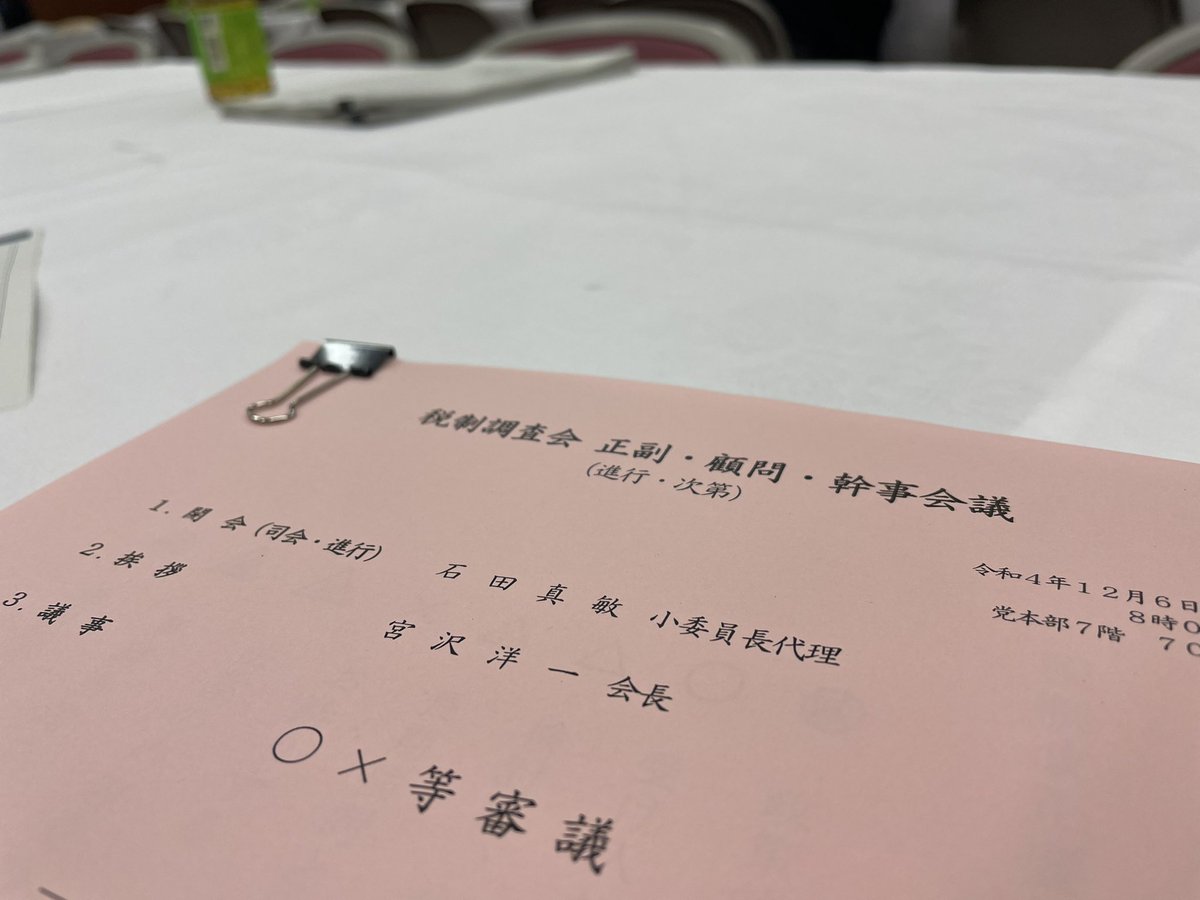 税制調査会 正副・顧問・幹事会議
(進行・次第)
令和4年12月6日
8時0
党本部7階 70
1. 開 会 (司会・進行) 石 田 真 敏 小委員長代理
2. 挨 拶 宮 沢 洋 一 会長
3. 議 事
○ × 等 審 議